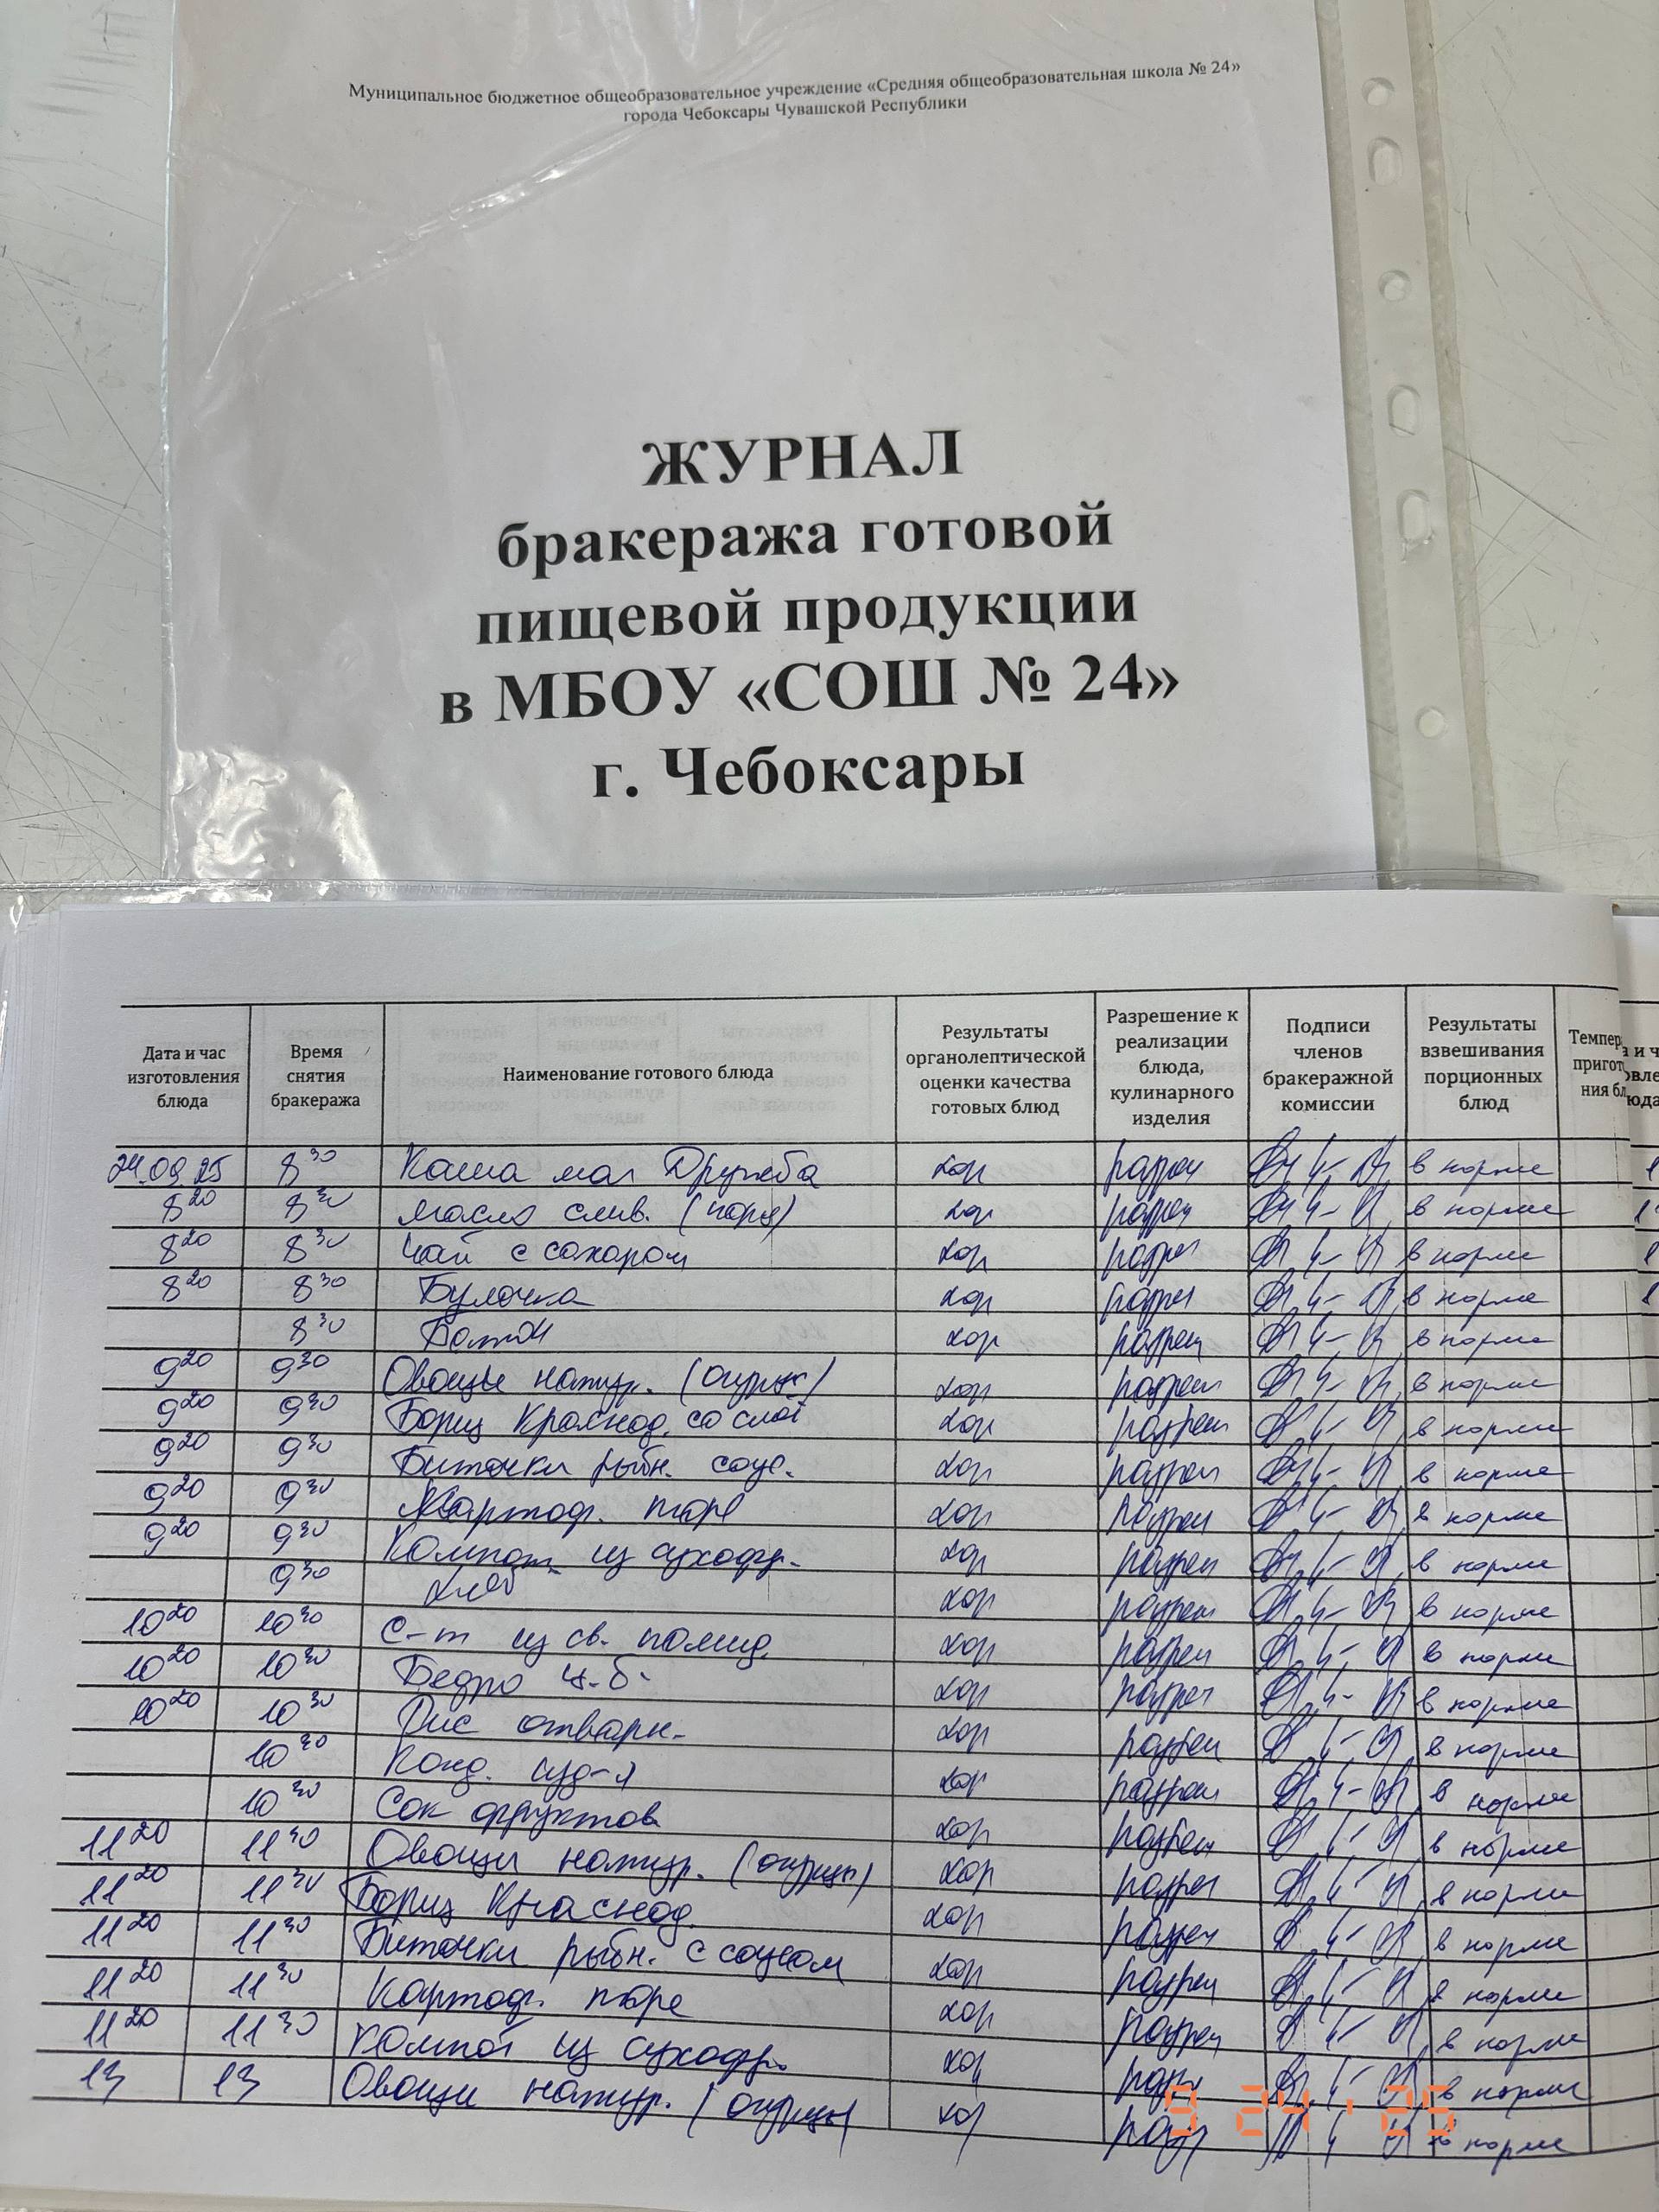 Муниципальное бюджетное общеобразовательное учреждение «Средняя общеобразовательная школа № 24»
города Чебоксары Чувашской Республики
ЖУРНАЛ
бракеража готовой
пищевой продукции
в МБОУ «СОШ № 24»
г. Чебоксары
Дата и час изготовления блюда Время снятия бракеража Наименование готового блюда Результаты органолептической оценки качества готовых блюд Разрешение к реализации блюда, кулинарного изделия Подписи членов бракеражной комиссии Результаты взвешивания порционных блюд Темпер пригот ния бл
24.09.25 8 30 Каша мол Дружба хор разреш в норме
8 20 8 30 масло слив. (порц) хор разреш в норме
8 20 8 30 Чай с сахаром хор разреш в норме
8 20 8 30 Булочка хор разреш в норме
8 30 Батон хор разреш в норме
9 20 9 30 Овощи натур. (огурцы) хор разреш в норме
9 20 9 30 Борщ Краснод. со смет хор разреш в норме
9 20 9 30 Биточки рыбн. соус. хор разреш в норме
9 20 9 30 Картоф. пюре хор разреш в норме
9 20 9 30 Компот из сухофр. хор разреш в норме
9 30 хлеб хор разреш в норме
10 20 10 30 С-т из св. помид. хор разреш в норме
10 20 10 30 Бедро ц-б- хор разреш в норме
10 20 10 30 Рис отварн. хор разреш в норме
10 30 Конд. изд-я хор разреш в норме
10 30 Сок фруктов хор разреш в норме
11 20 11 30 Овощи натур. (огурцы) хор разреш в норме
11 20 11 30 Борщ Краснод. хор разреш в норме
11 20 11 30 Биточки рыбн. с соусом хор разреш в норме
11 20 11 30 Картоф. пюре хор разреш в норме
11 20 11 30 Компот из сухофр. хор разр в норме
13 13 Овощи натур. (огурцы) хор разр в норме
9 24 '25